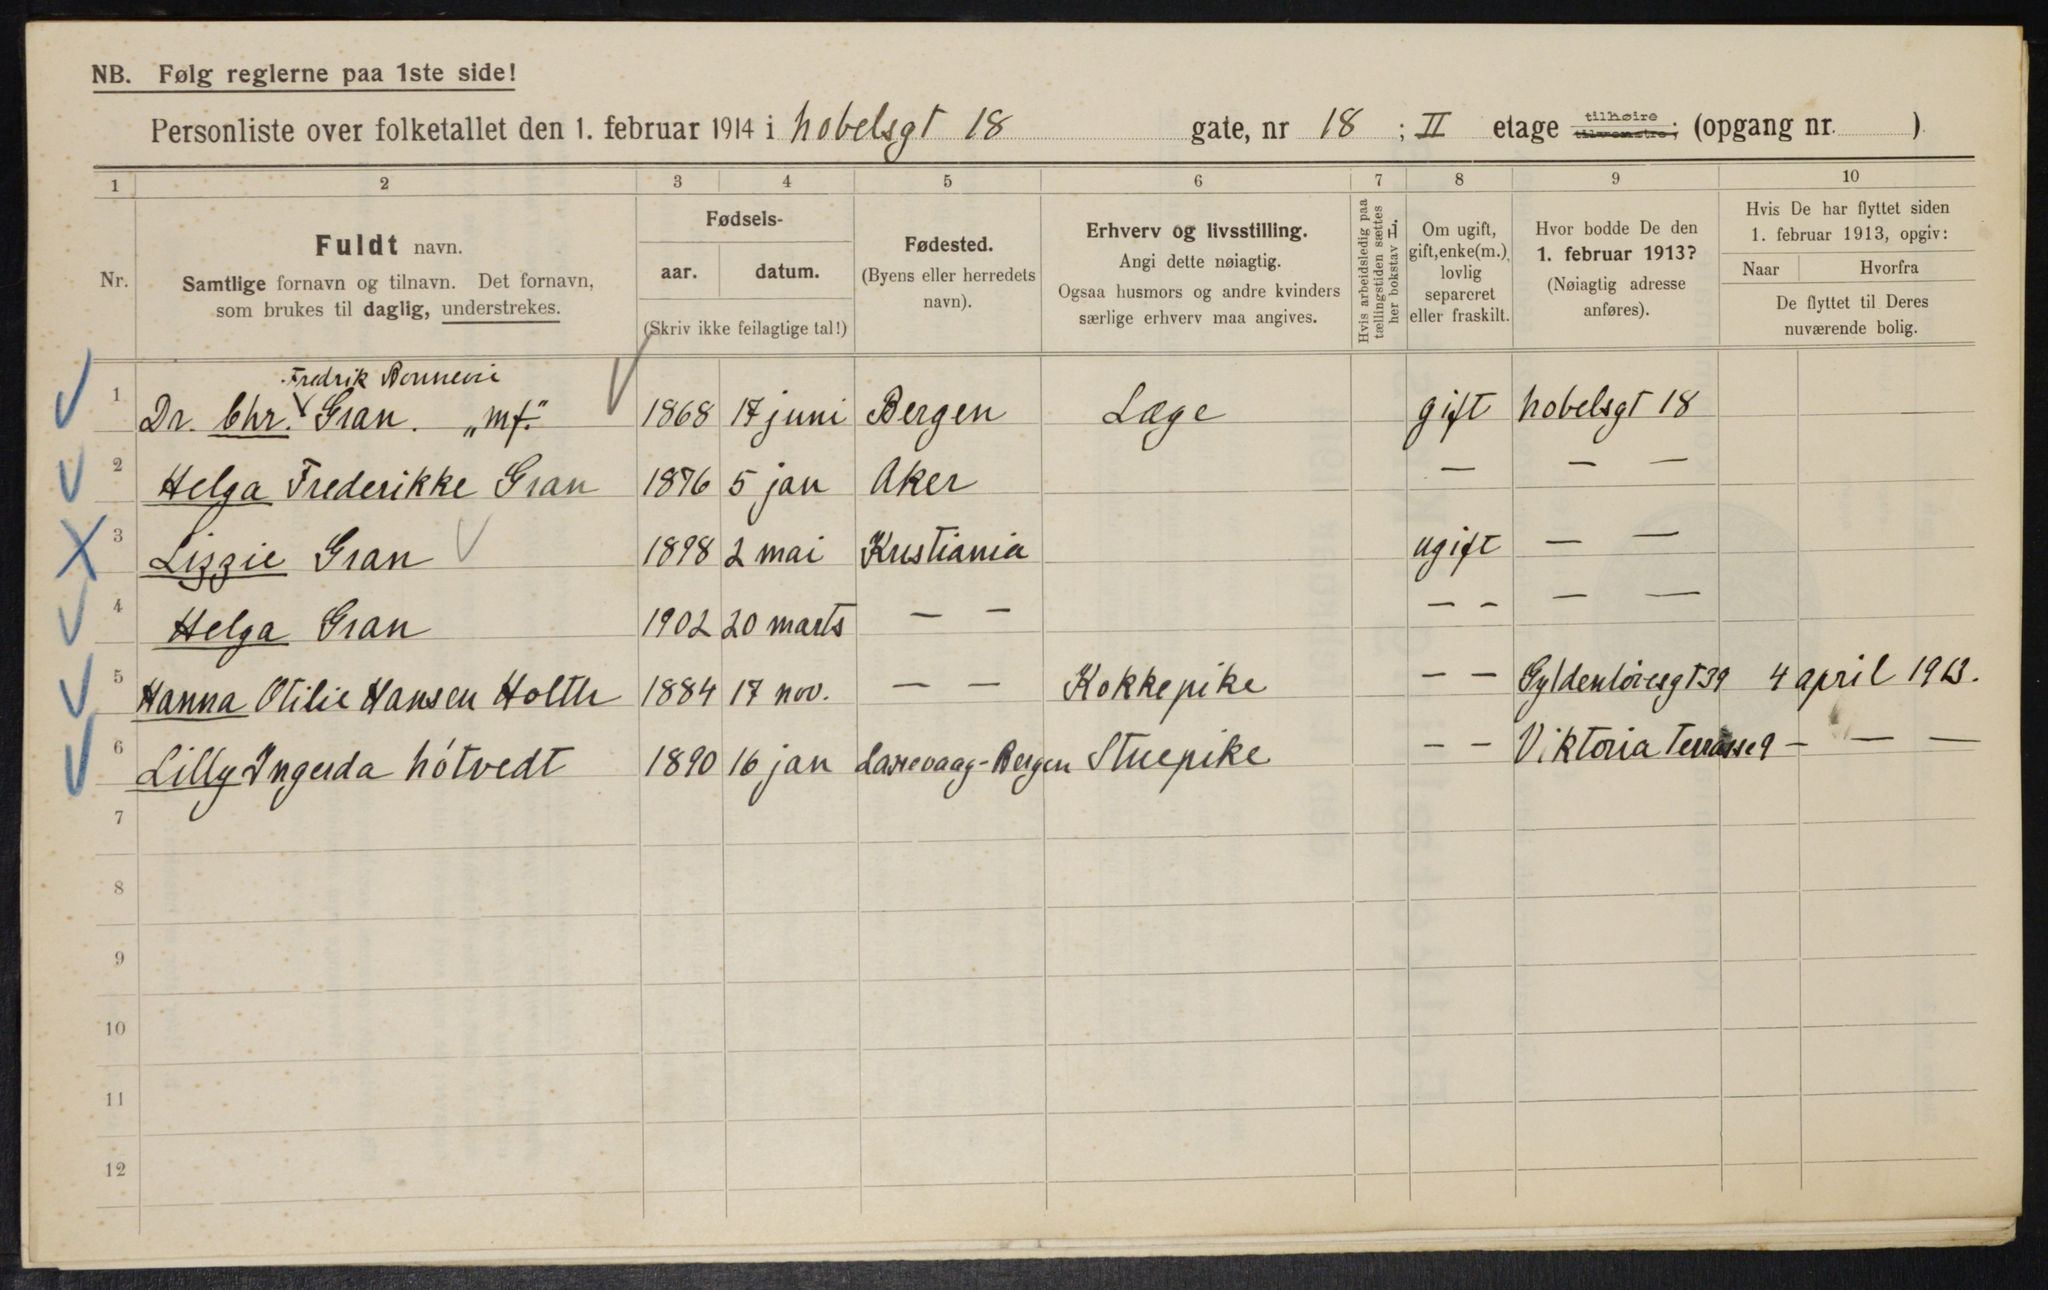 NB. Følg reglerne paa 1ste side!
Personliste over folketallet den 1. februar 1914 i Nobelsgt 18 gate, nr 18 ; II etage tilhøire tilvenstre; (opgang nr. )
1 2 3 4 5 6 7 8 9 10
Nr.
Fuldt navn.
Samtlige fornavn og tilnavn. Det fornavn,
som brukes til daglig, understrekes.
Fødsels-
aar. datum.
(Skriv ikke feilagtige tal!)
Fødested.
(Byens eller herredets
navn).
Erhverv og livsstilling.
Angi dette nøiagtig.
Ogsaa husmors og andre kvinders
særlige erhverv maa angives.
Hvis arbeidsledig paa
tællingstiden sættes
her bokstav L.
Om ugift,
gift, enke(m.),
lovlig
separeret
eller fraskilt.
Hvor bodde De den
1. februar 1913?
(Nøiagtig adresse
anføres).
Hvis De har flyttet siden
1. februar 1913, opgiv:
Naar Hvorfra
De flyttet til Deres
nuværende bolig.
Fredrik Bonnevie
1 Dr. Chr. Gran. „mf." 1868 17 juni Bergen Læge gift Nobelsgt 18
2 Helga Frederikke Gran 1876 5 jan Aker — — —
3 Lizzie Gran 1898 2 mai Kristiania ugift — —
4 Helga Gran 1902 20 marts — — — — — —
5 Hanna Otilie Hansen Holth 1884 17 nov. — — Kokkepike — — Gyldenløvesgt 39 4 april 1913.
6 Lilly Ingerda Nótvedt 1890 16 jan Laxevaag-Bergen Stuepike — — Viktoria Terrasse 9 — — —
7
8
9
10
11
12